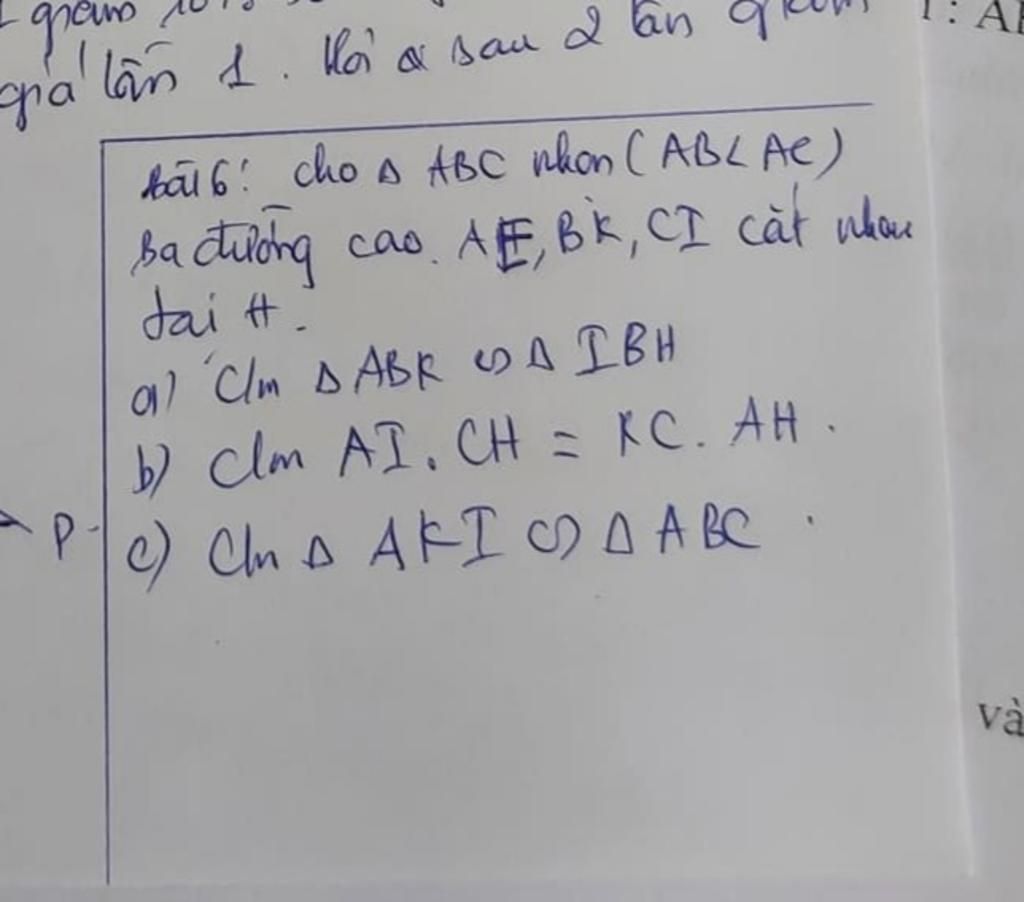 giá lần 1. Hỏi sau 2 lần
1: A
Bài 6: cho Δ ABC nhọn (AB < AC)
Ba đường cao. AE, BK, CI cắt nhau
tại H.
a) C/m Δ ABK ∽ Δ IBH
b) C/m AI. CH = KC. AH.
P
c) C/m Δ AKI ∽ Δ ABC.
và